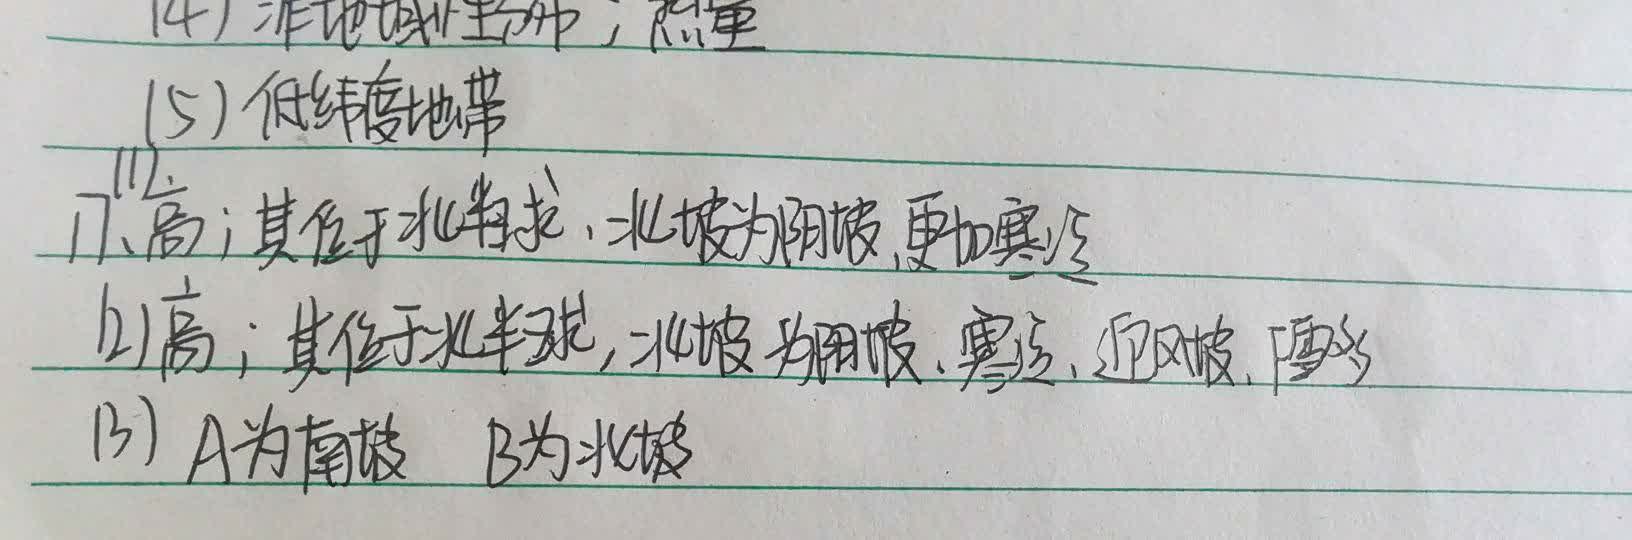 (4) 非地域性分布；热量
(5) 低纬度地带
17、(1)高；其位于北半球、北坡为阴坡,更加寒冷
(2)高；其位于北半球,北坡为阴坡、寒冷、迎风坡、降雪多
(3) A为南坡 B为北坡